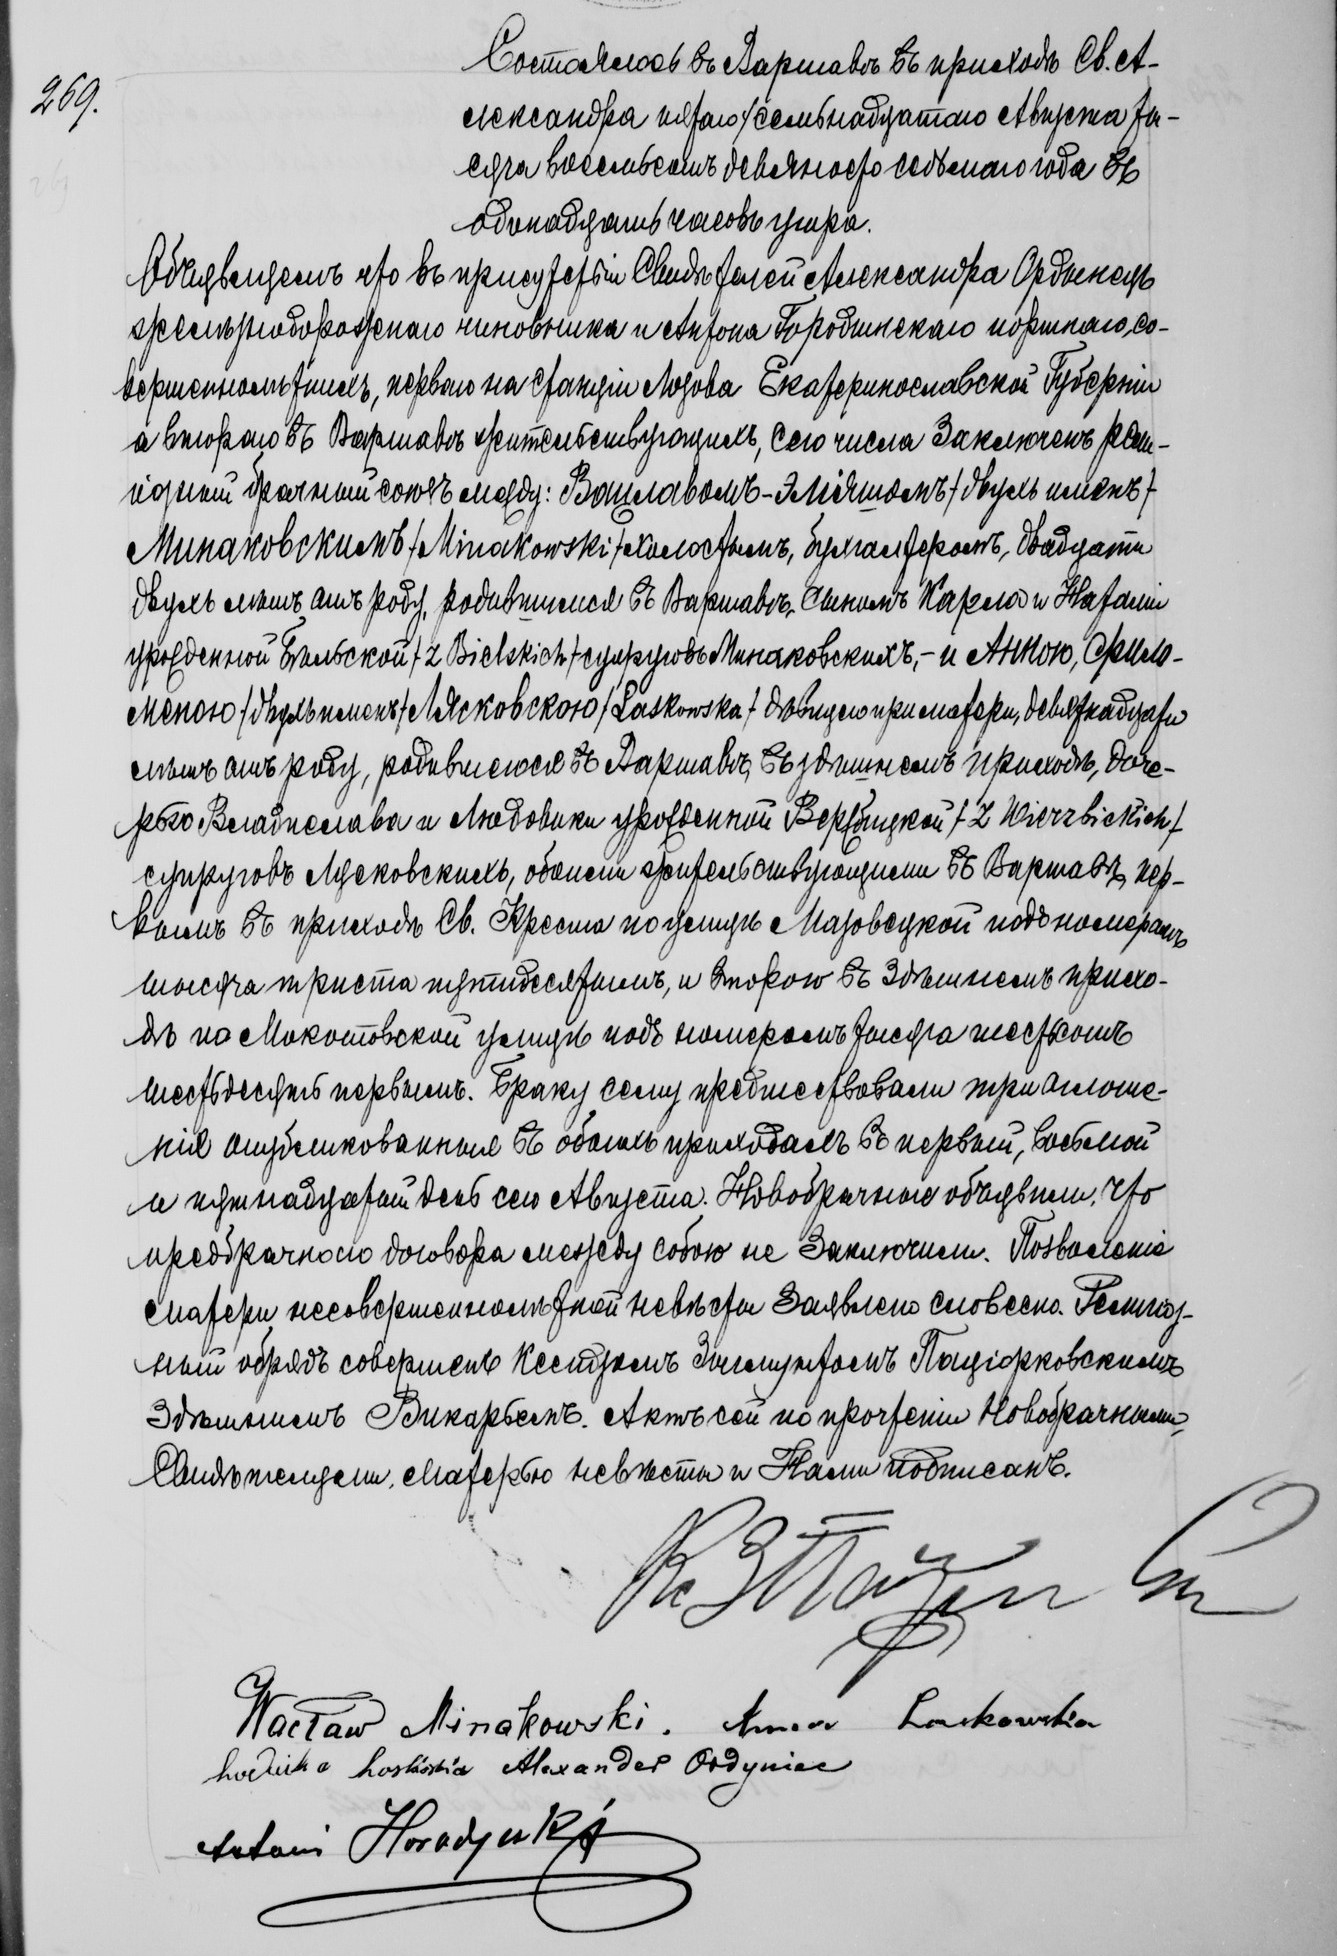 269.
Состоялось въ Варшавѣ въ приходѣ Св. А-
лександра пятаго/семьнадцатаго Августа ты-
сяча восемьсотъ девяносто седьмаго года въ
одинадцать часовъ утра.
Объявляемъ что въ присутствіи Свидѣтелей Александра Ордынецъ
желѣзнодорожнаго чиновника и Антона Городынскаго портнаго, со-
вершеннолѣтнихъ, перваго на станціи Лозова Екатеринославской Губерніи
а втораго въ Варшавѣ жительствующихъ, сего числа Заключенъ рели-
гіозный брачный союзъ между: Вацлавомъ-Эліяшомъ/двухъ именъ/
Минаковскимъ/Minakowski/холостымъ, бухгалтеромъ, двадцати
двухъ лѣтъ отъ роду, родившимся въ Варшавѣ, сыномъ Карла и Наталіи
урожденной Бѣльской/z Bielskich/супруговъ Минаковскихъ,- и Анною, Фило-
меною/двухъ именъ/Лясковскою/Laskowska/дѣвицею при матери, девятнадцати
лѣтъ отъ роду, родившеюся въ Варшавѣ, въ здѣшнемъ приходѣ, доче-
рью Владислава и Людовики урожденной Вержбицкой/z Wierzbickich/
супруговъ Лясковскихъ, обоими жительствующими въ Варшавѣ, пер-
вымъ въ приходѣ Св. Креста по улицѣ Мазовецкой подъ номеромъ
тысяча триста пятидесятымъ, и второю въ Здѣшнемъ прихо-
дѣ по Мокотовской улицѣ подъ номеромъ тысяча шестьсотъ
шестьдесятъ первымъ. Браку сему предшествовали три оглаше-
нія опубликованныя въ обоихъ приходахъ въ первый, восьмой
и пятнадцатый день сего Августа. Новобрачные объявили, что
предбрачнаго договора между собою не Заключили. Позволеніе
матери несовершеннолѣтной невѣсты Заявлено словесно. Религіоз-
ный обрядъ совершенъ Ксендзомъ Зыгмунтомъ Паціорковскимъ
Здѣшнимъ Викарьемъ. Актъ сей по прочтеніи Новобрачными,
Свидѣтелями, матерью невѣсты и Нами подписанъ.
Кс З
Wacław Minakowski. Anna Laskowska
Ludwika Laskowska Alexander Ordyniec
Antoni Horodyński